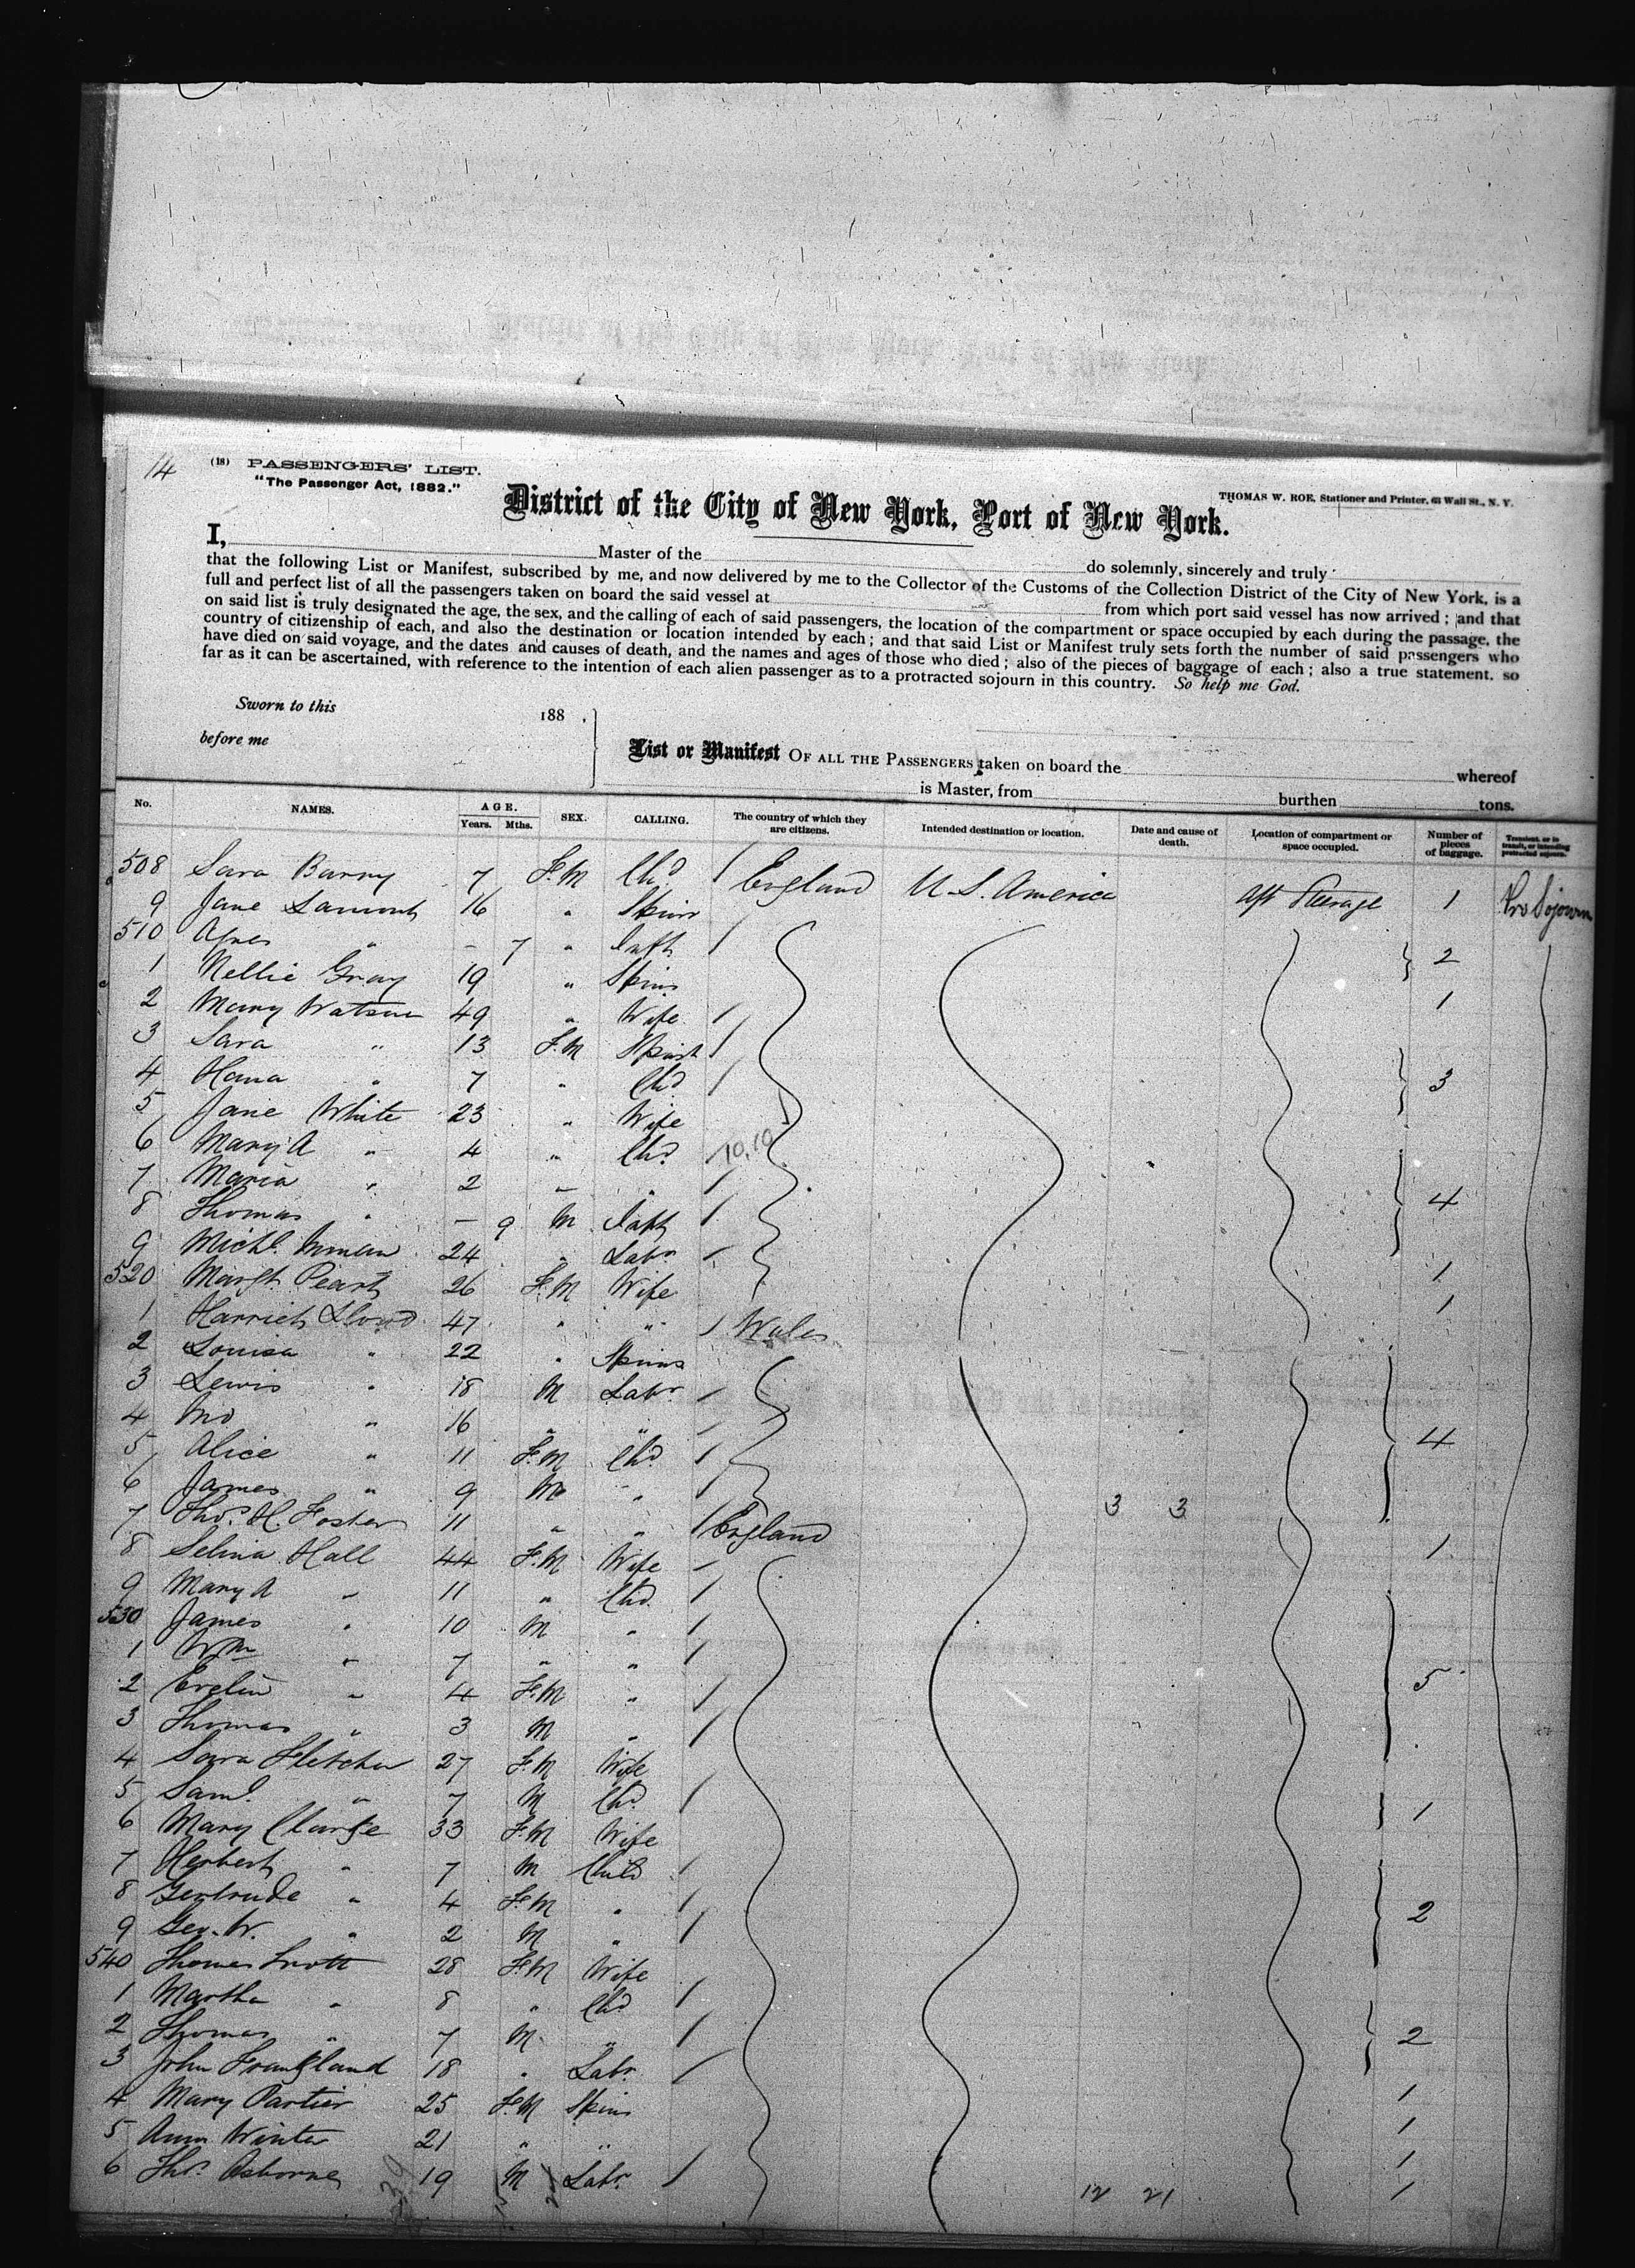 14
(18) PASSENGERS' LIST.
"The Passenger Act, 1882."
THOMAS W. ROE, Stationer and Printer, 63 Wall St., N. Y.
District of the City of New York, Port of New York.
I, Master of the do solemnly, sincerely and truly
that the following List or Manifest, subscribed by me, and now delivered by me to the Collector of the Customs of the Collection District of the City of New York, is a
full and perfect list of all the passengers taken on board the said vessel at from which port said vessel has now arrived; and that
on said list is truly designated the age, the sex, and the calling of each of said passengers, the location of the compartment or space occupied by each during the passage, the
country of citizenship of each, and also the destination or location intended by each; and that said List or Manifest truly sets forth the number of said passengers who
have died on said voyage, and the dates and causes of death, and the names and ages of those who died; also of the pieces of baggage of each; also a true statement, so
far as it can be ascertained, with reference to the intention of each alien passenger as to a protracted sojourn in this country. So help me God.
Sworn to this 188 .
before me
List or Manifest OF ALL THE PASSENGERS taken on board the whereof
is Master, from burthen tons.
No. NAMES. AGE. Years. Mths. SEX. CALLING. The country of which they are citizens. Intended destination or location. Date and cause of death. Location of compartment or space occupied. Number of pieces of baggage. Transient, or in transit, or intending protracted sojourn.
508 Sara Barry 7 F.M Chd England U S. America Aft Steerage 1 Pro Sojourn
9 Jane Lamont 16 " Spinr
510 Agnes " - 7 " Inft 2
1 Nellie Gray 19 " Spins 1
2 Mary Watson 49 " Wife
3 Sara " 13 F.M Spinst 3
4 Hana " 7 " Chd
5 Jane White 23 " Wife
6 Mary A " 4 " Chd. 10,10
7 Maria " 2 " " 4
8 Thomas " - 9 M Inft
9 Michl. 24 " Labr. 1
520 Margt. Peart 26 F.M Wife 1
1 Harriet Lloyd 47 " " Wales
2 Louisa " 22 " Spins
3 Lewis " 18 M Labr
4 " 16 " " 4
5 Alice " 11 F.M Chd.
6 James " 9 M " 3 3
7 Thos. H. Foster 11 " " England 1
8 Selina Hall 44 F.M Wife
9 Mary A " 11 " Chd.
530 James " 10 M "
1 Wm " 7 " " 5
2 Evelin " 4 F.M "
3 Thomas " 3 M "
4 Sara Fletcher 27 F.M Wife
5 Saml. " 7 M Chd. 1
6 Mary Clarke 33 F.M Wife
7 Herbert " 7 M Child
8 Gertrude " 4 F.M " 2
9 Geo. W. " 2 M "
540 Thomas 28 F.M Wife
1 Martha " 8 " Chd
2 Thomas " 7 M " 2
3 John Frankland 18 " Labr. 1
4 Mary Partier 25 F.M Spins 1
5 Ann Winter 21 " " 1
6 Thos. Osborne 19 M Labr. 12 21 1